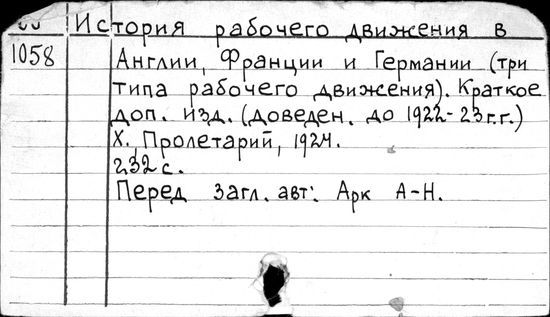 История рабочего движения в
1058 Англии, Франции и Германии (три
типа рабочего движения). Краткое
доп. изд. (доведен. до 1922-23 г.г.)
Х., Пролетарий, 1924.
232 с.
Перед загл. авт: Арк А-Н.